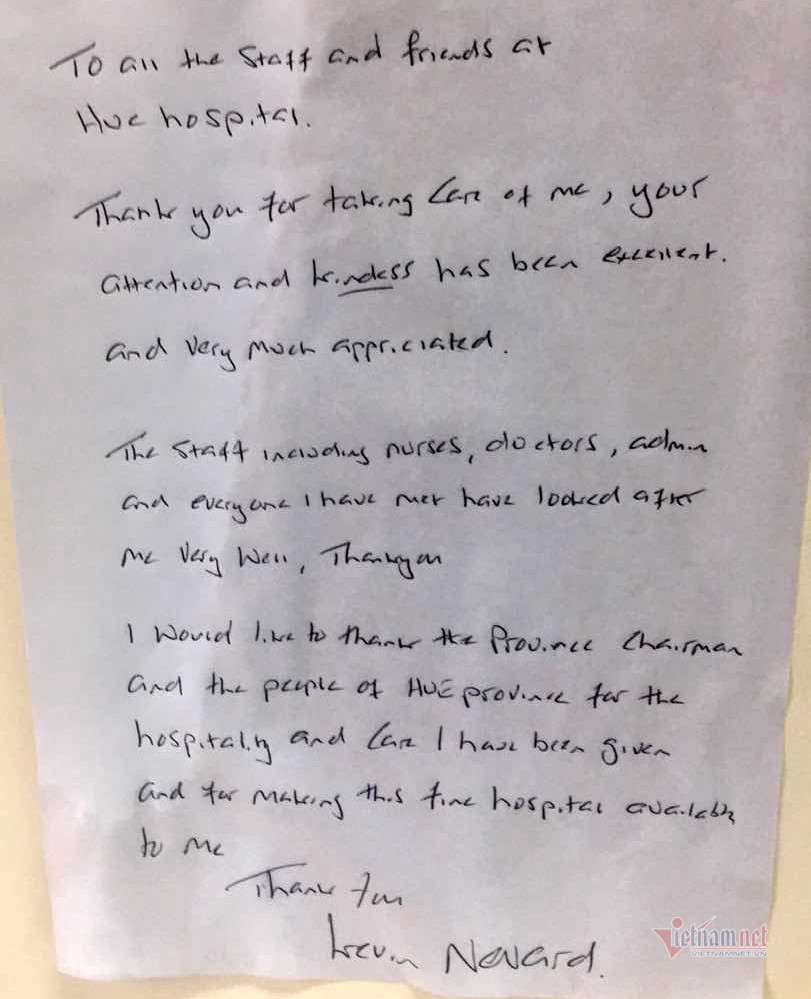 To all the Staff and friends at
Hue hospital.
Thank you for taking Care of me, your
attention and kindess has been excellent.
and very much appriciated.
The Staff including nurses, doctors, admin
and everyone I have met have looked after
me very Well, Thankyou
I Would like to thank the Province Chairman
and the people of HUE province for the
hospitality and Care I have been given
and for making this fine hospital available
to me
Thank You
Kevin Nevard.
Vietnamnet
VIETNAMNET.VN